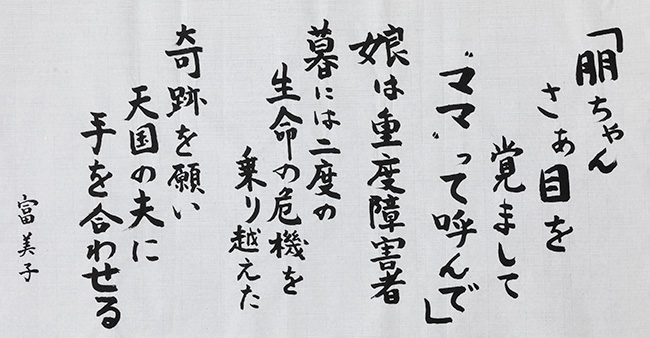 「朋ちゃん
さぁ目を
覚まして
〝ママ〟って呼んで」
娘は重度障害者
暮には二度の
生命の危機を
乗り越えた
奇跡を願い
天国の夫に
手を合わせる
富美子